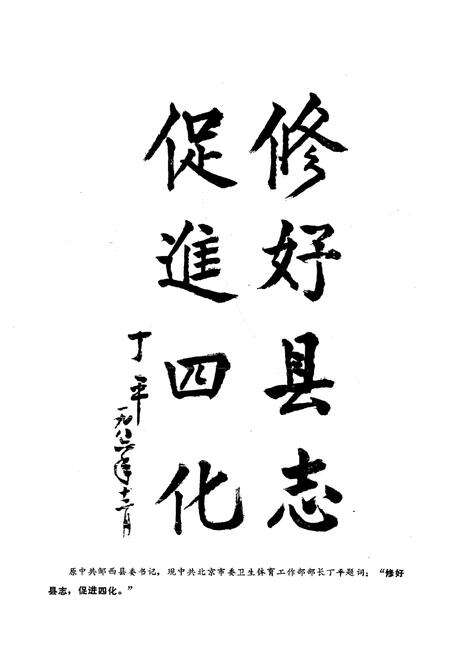 修好县志
促進四化
丁平
一九八六年十二月
原中共邹西县委书记，现中共北京市委卫生体育工作部部长丁平题词：“修好
县志，促进四化。”